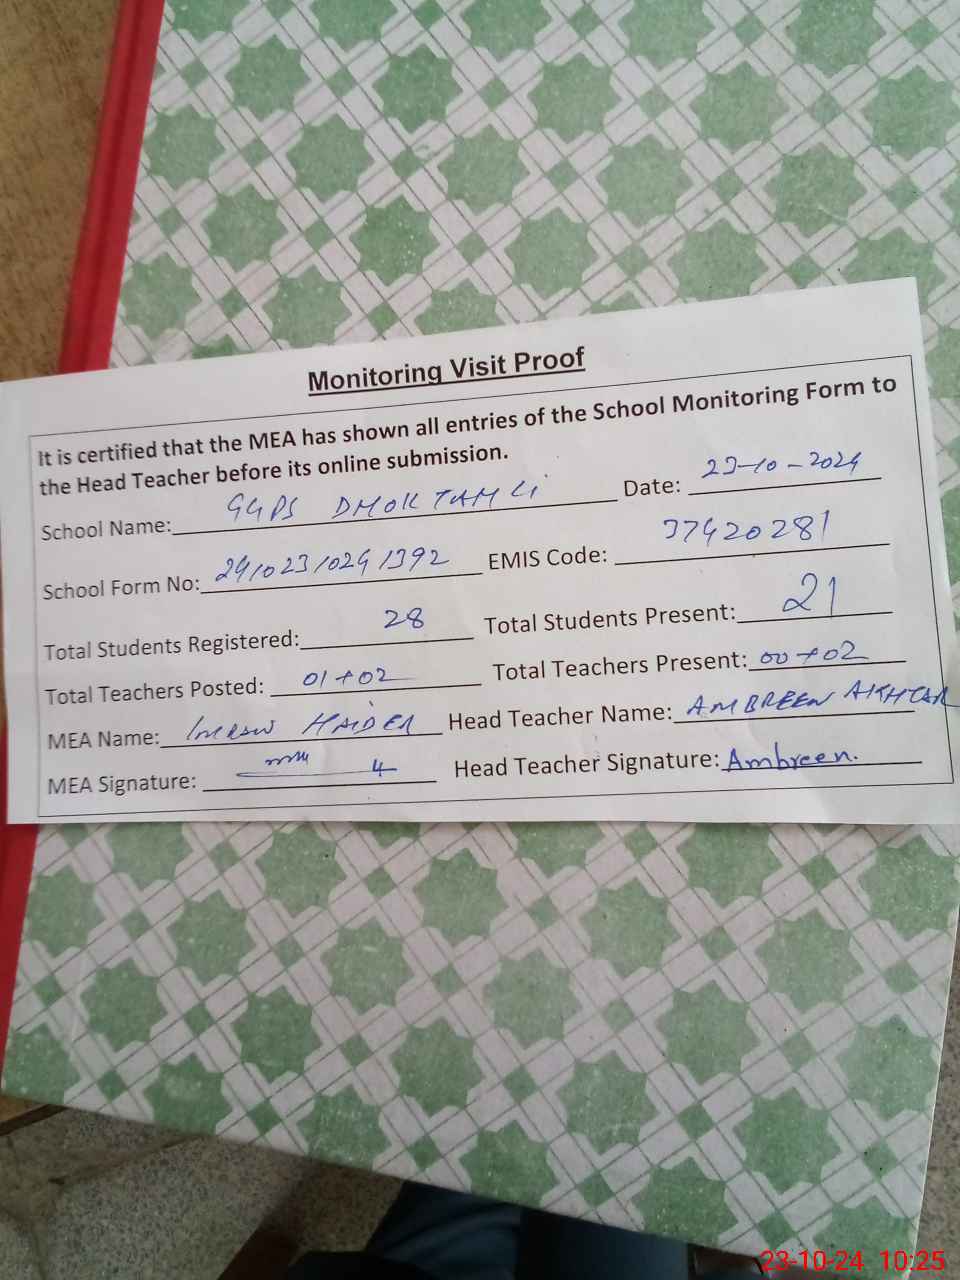 Monitoring Visit Proof
It is certified that the MEA has shown all entries of the School Monitoring Form to
the Head Teacher before its online submission.
School Name: GGPS DHOK TAMLI Date: 23-10-2024
School Form No: 24102310241392 EMIS Code: 37420281
Total Students Registered: 28 Total Students Present: 21
Total Teachers Posted: 01+02 Total Teachers Present: 00+02
MEA Name: IMRAN HAIDER Head Teacher Name: AMBREEN AKHTAR
MEA Signature: Head Teacher Signature: Ambreen.
23-10-24 10:25